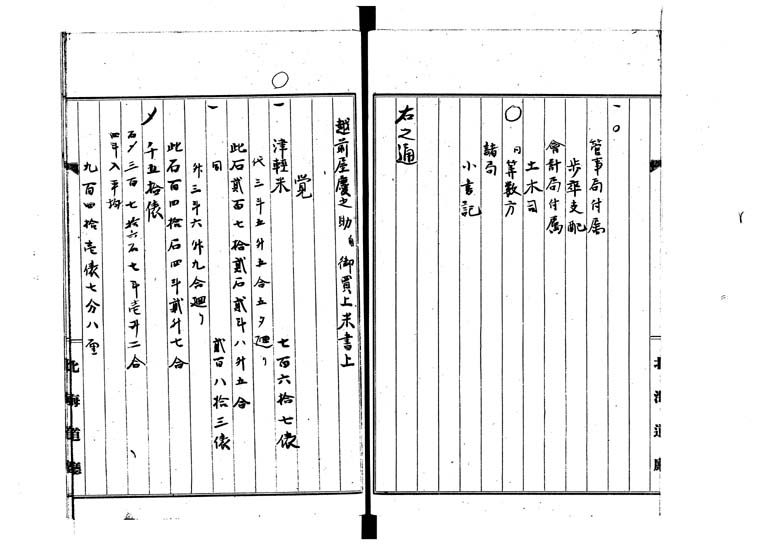 一〇
管事局付属
歩卒支配
會計局付属
土木司
〇
〃 算数方
諸局
小書記
右之通
北海道廳
越前屋慶之助ゟ御買上米書上
覚
〇
一 津軽米 七百六拾七俵
代三斗五升五合五夕廻り
此石貳百七拾貳石貳斗八升五合
一 同 貳百八拾三俵
升三斗六升九合廻り
此石百四拾石四斗貳升七合
〆 千五拾俵
石〆三百七拾六石七斗壱升二合
四斗入平均
九百四拾壱俵七分八厘
北海道廳